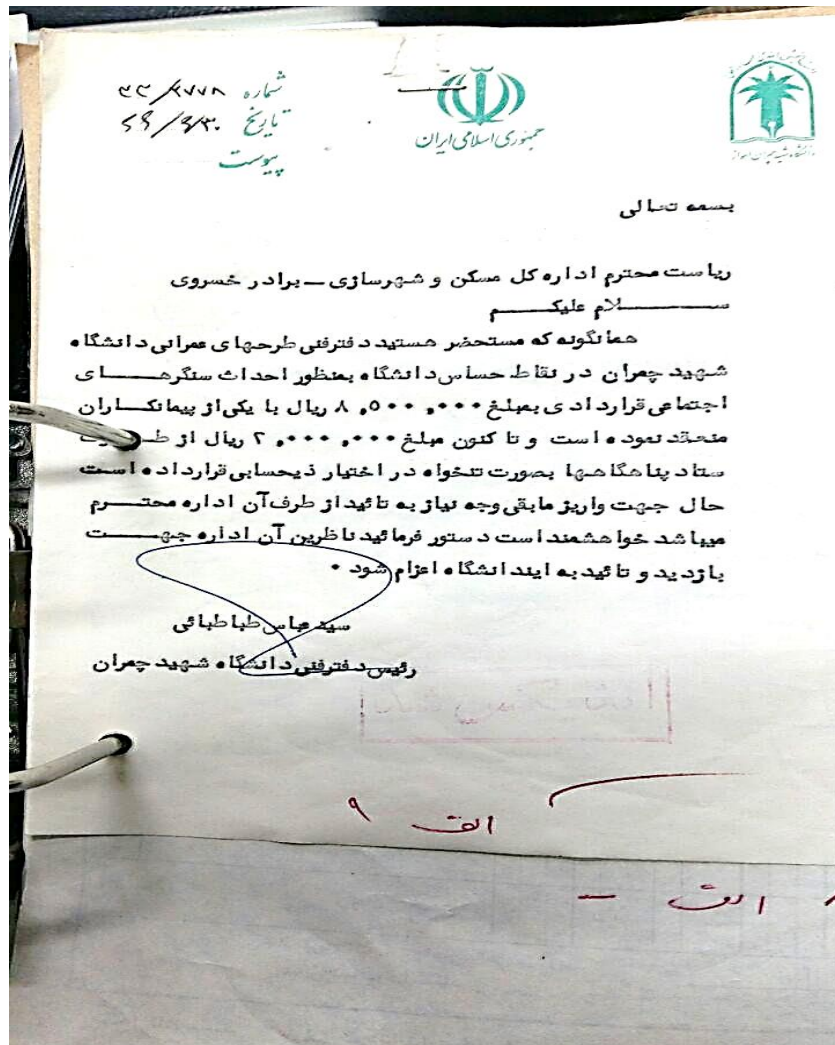 شماره ۳۳/۲۷۷۸
تاریخ ۶۶/۶/۳۰
پیوست
جمهوری اسلامی ایران
دانشگاه شهید چمران اهواز
بسمه تعالی
ریاست محترم اداره کل مسکن و شهرسازی ـ برادر خسروی
ســـلام علیکـــم
همانگونه که مستحضر هستید دفترفنی طرحهای عمرانی دانشگاه
شهید چمران در نقاط حساس دانشگاه بمنظور احداث سنگرهـــای
اجتماعی قراردادی بمبلغ ۸,۵۰۰,۰۰۰ ریال با یکی از پیمانکـــاران
منعقد نموده است و تا کنون مبلغ ۲,۰۰۰,۰۰۰ ریال از طـــ
ستاد پناهگاهها بصورت تنخواه در اختیار ذیحسابی قرارداده اســـت
حال جهت واریز مابقی وجه نیاز به تائید از طرف آن اداره محتـــرم
میباشد خواهشمند است دستور فرمائید ناظرین آن اداره جهـــت
بازدید و تائید به ایندانشگاه اعزام شود •
سید عباس طباطبائی
رئیس دفترفنی دانشگاه شهید چمران
الف ۹
الف -